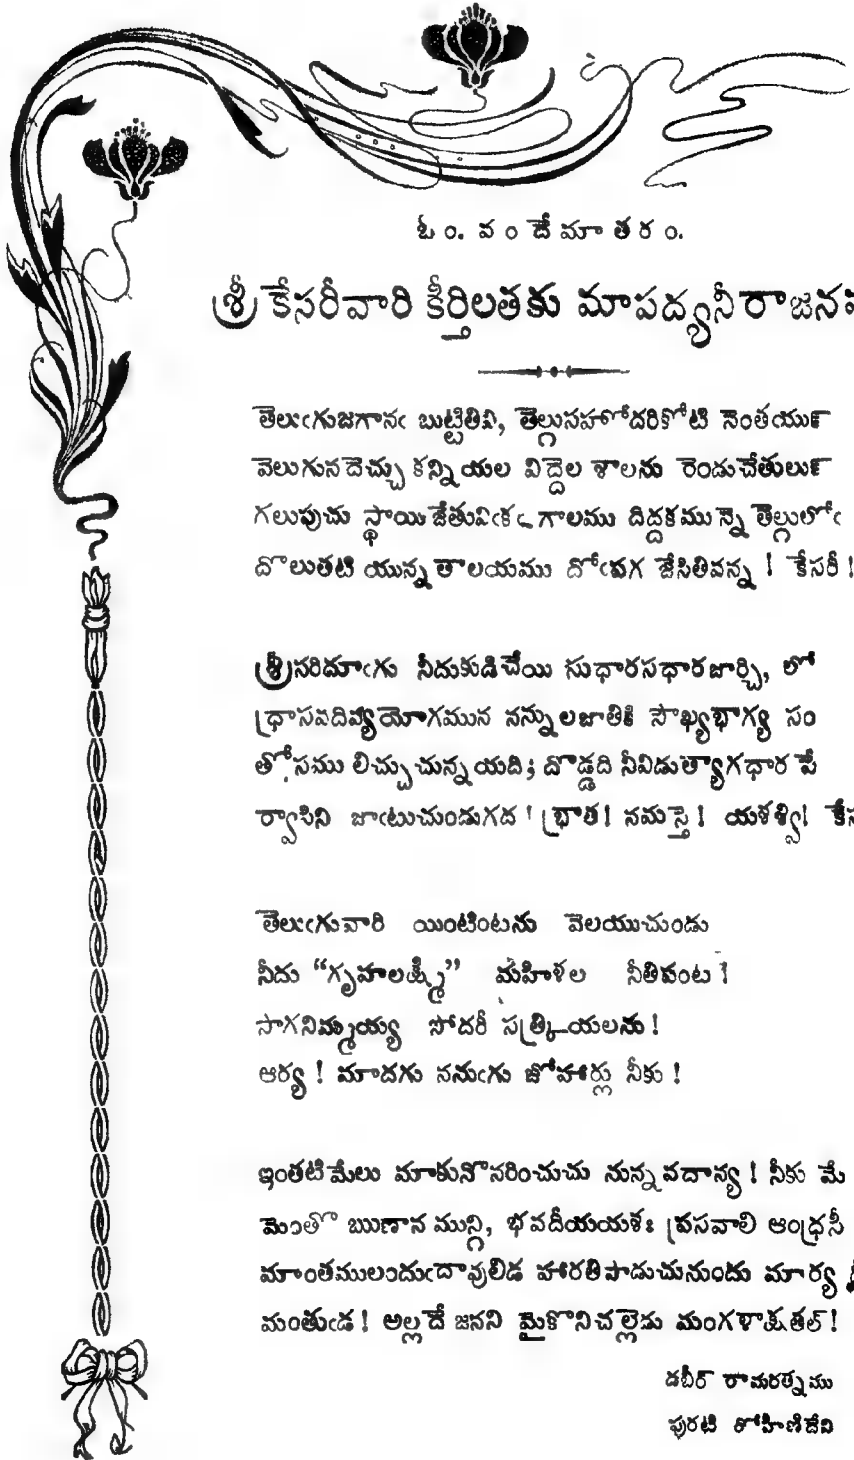 ఓం. వందేమాతరం.
శ్రీ కేసరీవారి కీర్తిలతకు మాపద్యనీరాజన
తెలుఁగుజగానఁ బుట్టితివి, తెల్గుసహోదరికోటి నెంతయున్
వెలుగున దెచ్చు కన్నియల విద్దెల శాలను రెండుచేతులున్
గలుపుచు స్థాయిజేతువిఁకఁ గాలము దిద్దకమున్నె తెల్గులోఁ
దొలుతటి యున్నతాలయము దోఁపగ జేసితివన్న ! కేసరీ !
శ్రీసరిదూఁగు నీదుకుడిచేయి సుధారసధారజార్చి, లో
ధ్రాసవదివ్యయోగమున నన్నులజాతికి సౌఖ్యభాగ్య సం
తోసము లిచ్చుచున్నయది; దొడ్డది నీవిడుత్యాగధార పే
ర్వాసిని జాఁటుచుండుగద ! భ్రాత! నమస్తె! యశశ్వి! కేస
తెలుఁగువారి యింటింటను వెలయుచుండు
నీదు “గృహలక్ష్మి” మహిళల నీతివంట !
సాగనిమ్మయ్య సోదరీ సత్క్రియలను !
ఆర్య ! మాదగు ననుఁగు జోహార్లు నీకు !
ఇంతటిమేలు మాకునొనరించుచు నున్నవదాన్య ! నీకు మే
మెంతొ ఋణాన మున్గి, భవదీయయశః ప్రసవాలి ఆంధ్రసీ
మాంతములందుఁదావులిడ హారతిపాడుచునుందు మార్య
మంతుఁడ ! అల్లదే జనని మైకొనిచల్లెడు మంగళాక్షతల్ !
డబీర్ రామరత్నము
పురటి రోహిణిదేవి